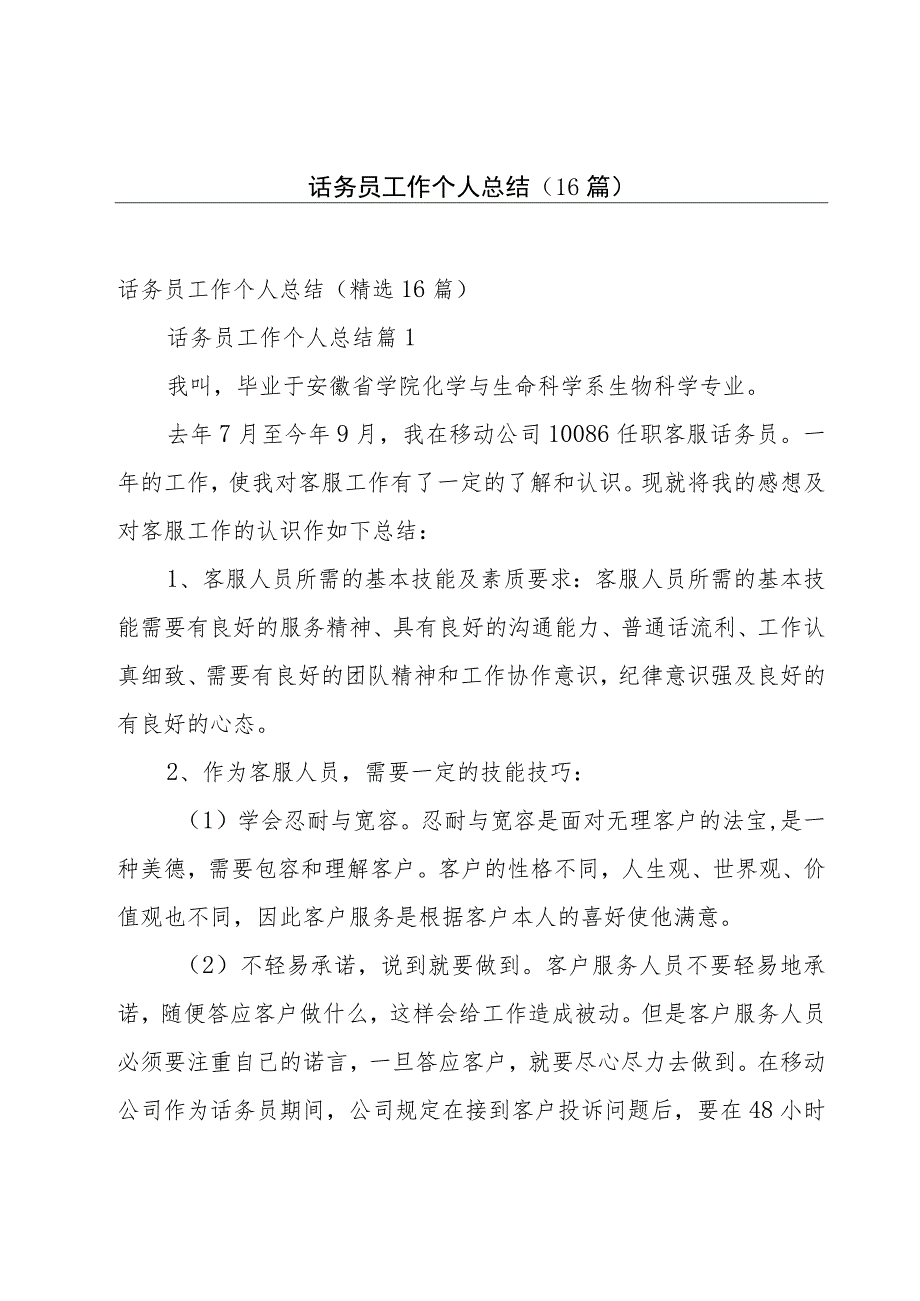 话务员工作个人总结（16篇）
话务员工作个人总结（精选16篇）
话务员工作个人总结篇1
我叫，毕业于安徽省学院化学与生命科学系生物科学专业。
去年7月至今年9月，我在移动公司10086任职客服话务员。一
年的工作，使我对客服工作有了一定的了解和认识。现就将我的感想及
对客服工作的认识作如下总结：
1、客服人员所需的基本技能及素质要求：客服人员所需的基本技
能需要有良好的服务精神、具有良好的沟通能力、普通话流利、工作认
真细致、需要有良好的团队精神和工作协作意识，纪律意识强及良好的
有良好的心态。
2、作为客服人员，需要一定的技能技巧：
（1）学会忍耐与宽容。忍耐与宽容是面对无理客户的法宝,是一
种美德，需要包容和理解客户。客户的性格不同，人生观、世界观、价
值观也不同，因此客户服务是根据客户本人的喜好使他满意。
（2）不轻易承诺，说到就要做到。客户服务人员不要轻易地承
诺，随便答应客户做什么，这样会给工作造成被动。但是客户服务人员
必须要注重自己的诺言，一旦答应客户，就要尽心尽力去做到。在移动
公司作为话务员期间，公司规定在接到客户投诉问题后，要在48小时